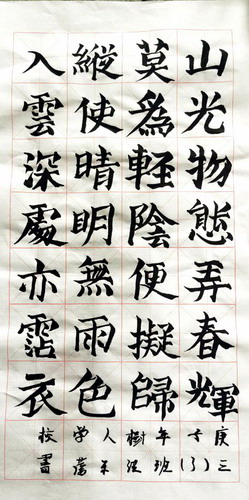 山光物態弄春輝
莫爲軽陰便擬歸
縱使晴明無雨色
入雲深處亦霑衣
庚子年樹人学校
三(3)班 書